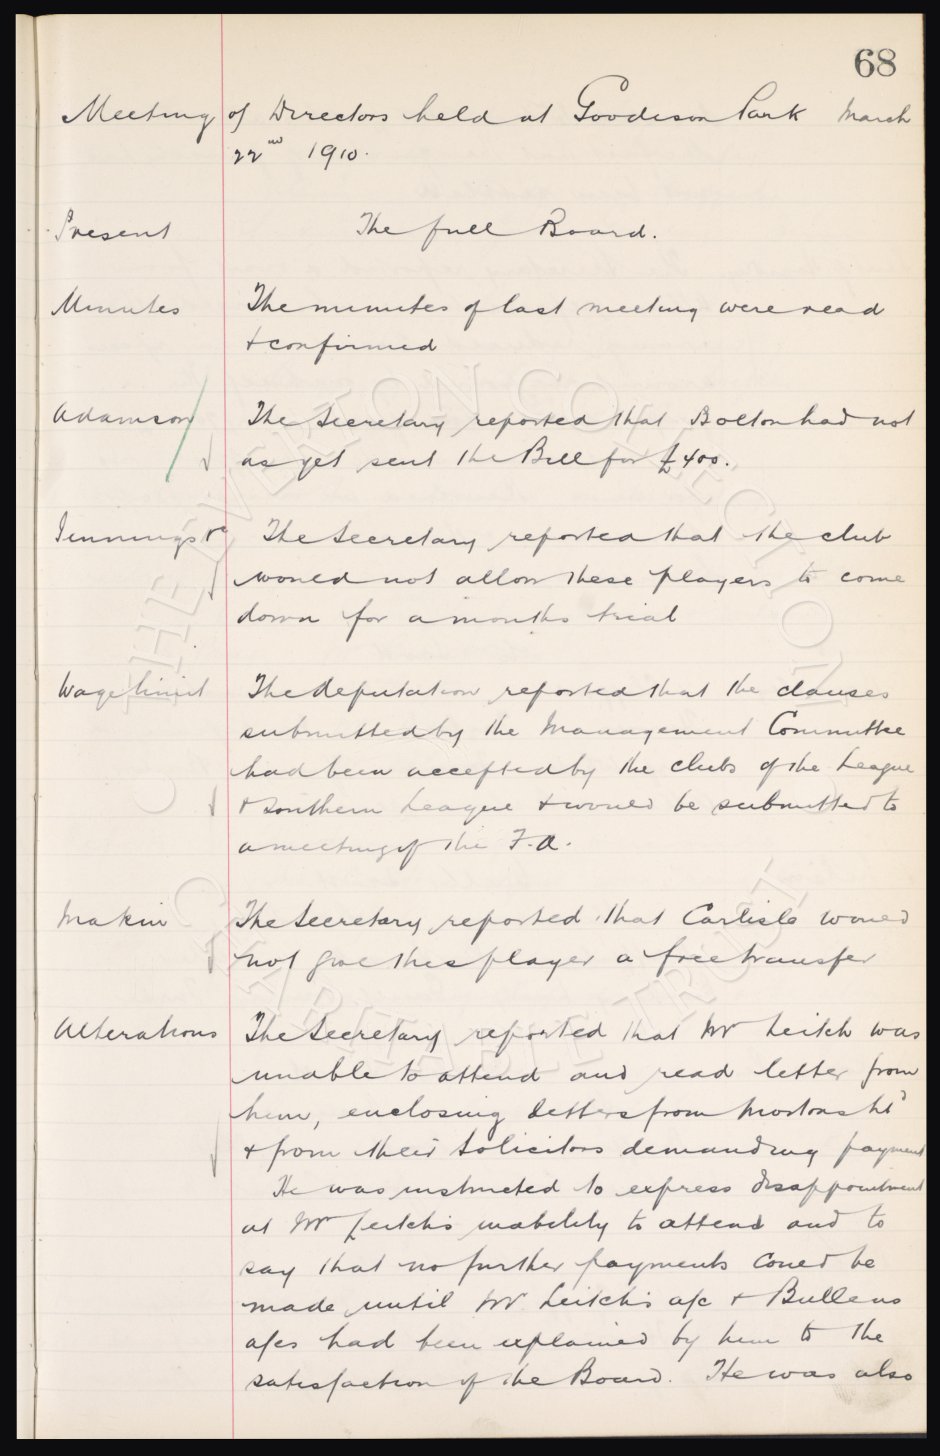 68
Meeting of Directors held at Goodison Park March
22nd 1910.
Present The full Board.
Minutes The minutes of last meeting were read
& confirmed
Adamson The Secretary reported that Bolton had not
as yet sent the Bill for £400.
Jennings &c The Secretary reported that the club
would not allow these players to come
down for a months trial
Wage limit The deputation reported that the clauses
submitted by the Management Committee
had been accepted by the clubs of the League
& Southern League & would be submitted to
a meeting of the F.A.
Makin The Secretary reported that Carlisle would
not give this player a free transfer
Alterations The Secretary reported that Mr Leitch was
unable to attend and read letter from
him, enclosing letters from Mortons Ltd
& from their Solicitors demanding payment
He was instructed to express disappointment
at Mr Leitch's inability to attend and to
say that no further payments could be
made until Mr Leitch's a/c & Bullens
a/cs had been explained by him to the
satisfaction of the Board. He was also
THE EVERTON COLLECTION
CHARITABLE TRUST